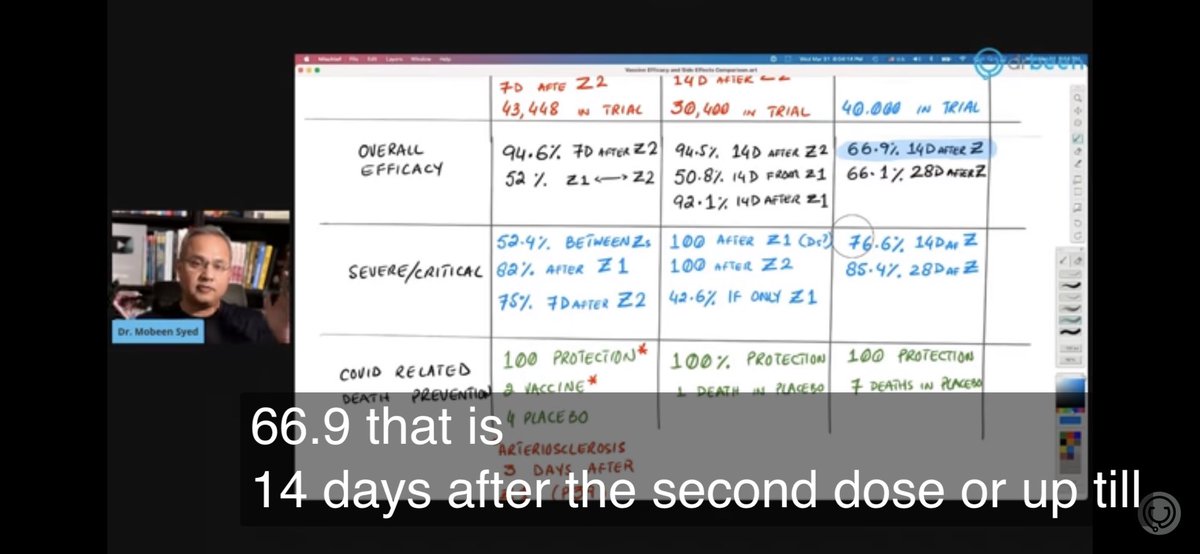 Mischief File Edit Layers Window Help
Vaccine Efficacy and Side Effects Comparison.art
drbeen
7D AFTE Z2
14D AFTER Z2
43,448 IN TRIAL
30,400 IN TRIAL
40.000 IN TRIAL
OVERALL
EFFICACY
94.6% 7D AFTER Z2
52% Z1 ⟷ Z2
94.5% 14D AFTER Z2
50.8% 14D FROM Z1
92.1% 14D AFTER Z1
66.9% 14D AFTER Z
66.1% 28D AFTER Z
SEVERE/CRITICAL
52.4% BETWEEN Zs
82% AFTER Z1
75% 7D AFTER Z2
100 AFTER Z1 (Ds?)
100 AFTER Z2
42.6% IF ONLY Z1
76.6% 14D AF Z
85.4% 28D AF Z
COVID RELATED
DEATH PREVENTION
100 PROTECTION*
2 VACCINE*
4 PLACEBO
ARTERIOSCLEROSIS
3 DAYS AFTER
100% PROTECTION
1 DEATH IN PLACEBO
100 PROTECTION
7 DEATHS IN PLACEBO
Dr. Mobeen Syed
66.9 that is
14 days after the second dose or up till